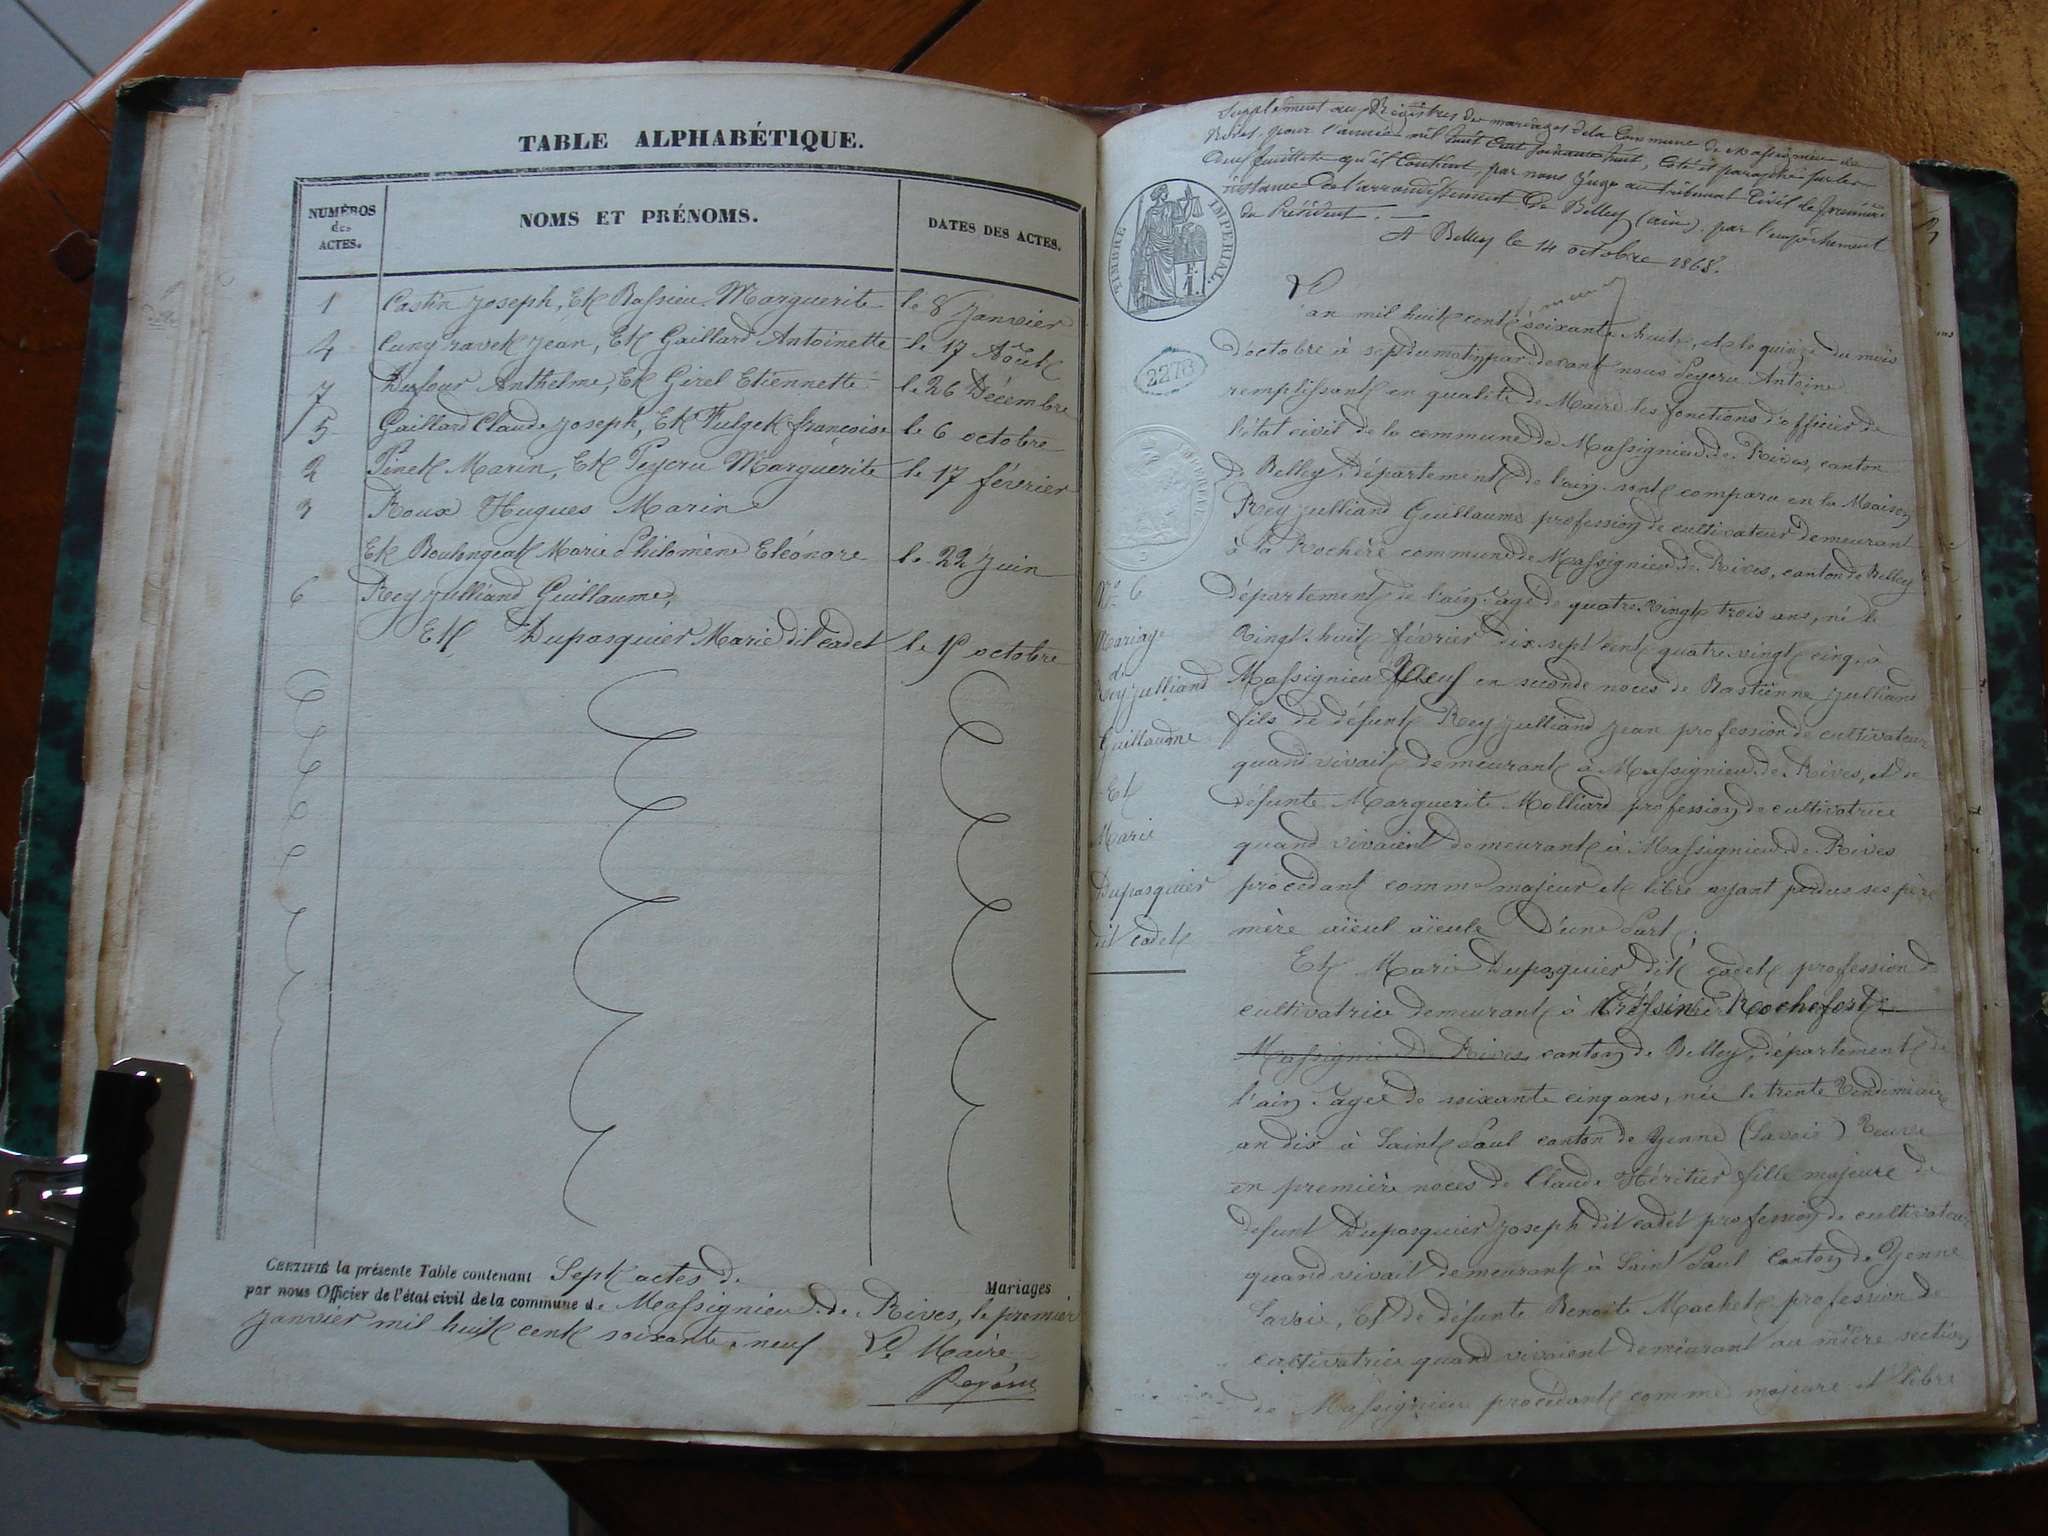 TABLE ALPHABÉTIQUE.
NUMÉROS
des
ACTES.
NOMS ET PRÉNOMS.
DATES DES ACTES.
1 Castin Joseph, Et Bassieu Marguerite le 8 Janvier
4 Cuny ravet Jean, Et Gaillard Antoinette le 17 Août
7 Dufour Anthelme, Et Girel Etiennette le 26 Décembre
5 Gaillard Claude Joseph, Et Fulget françoise le 6 octobre
2 Pinet Marin, Et Peycru Marguerite le 17 février
3 Roux Hugues Marin
Et Boulongeat Marie Philomène Eléonore le 22 Juin
6 Rey Julliand Guillaume,
Et Dupasquier Marie dit cadet le 15 octobre
CERTIFIÉ la présente Table contenant Sept actes de Mariages
par nous Officier de l'état civil de la commune de Massignieu de Rives, le premier
Janvier mil huit cent soixante neuf Le Maire
Peycru
Supplément aux Registres des mariages de la Commune de Massignieu de
Rives, pour l'année mil huit cent soixante huit, coté et paraphé sur les
deux feuillets qu'il contient, par nous Juge au tribunal Civil de première
instance de l'arrondissement de Belley (ain). par l'empêchement
du Président. —
A Belley le 14 octobre 1868.
TIMBRE IMPÉRIAL.
2278
L'an mil huit cent soixante huit, et le quinze du mois
d'octobre à sept du matin par devant nous Peycru Antoine
remplissant en qualité de Maire les fonctions d'officier de
l'état civil de la commune de Massignieu de Rives, canton
de Belley, département de l'ain sont comparu en la Maison
Rey Julliand Guillaume profession de cultivateur demeurant
à la Rochère commune de Massignieu de Rives, canton de Belley
département de l'ain, age de quatre vingt trois ans, né le
vingt huit février dix sept cent quatre vingt cinq, à
Massignieu Veuf en seconde noces de Bastienne Julliand
fils de défunt Rey Julliand Jean profession de cultivateur
quand vivait demeurant à Massignieu de Rives, et de
défunte Marguerite Molliard profession de cultivatrice
quand vivaient demeurant à Massignieu de Rives
procédant comme majeur et libre ayant perdus ses père
mère aïeul aïeule D'une Part;
Et Marie Dupasquier dit cadet profession de
cultivatrice demeurant à Cressin Rochefort
Massignieu de Rives canton de Belley, département de
l'ain, agée de soixante cinq ans, née le trente Vendimiaire
an dix à Saint Paul canton de Yenne (Savoie) Veuve
en première noces de Claude Héritier fille majeure de
defunt Dupasquier Joseph dit cadet profession de cultivateur
quand vivait demeurant à Saint Paul Canton de Yenne
Savoie, Et de défunte Benoite Machet profession de
cultivatrice quand vivaient demeurant au même section
de Massignieu procédant comme majeure et libre
No 6
Mariage
de
Rey Julliand
Guillaume
Et
Marie
Dupasquier
dit cadet